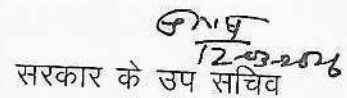 12-03-2026
सरकार के उप सचिव